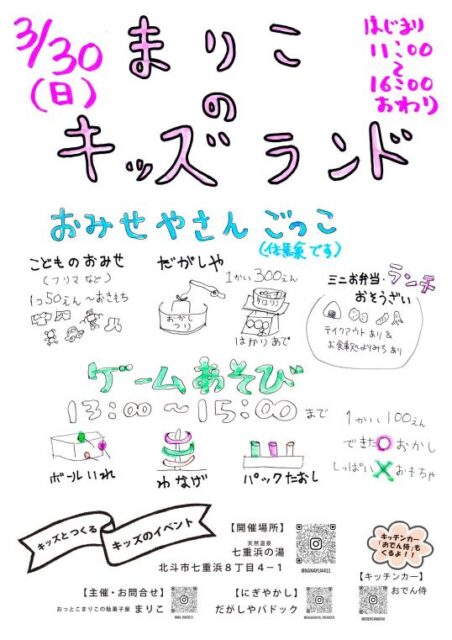 3/30
(日)
まりこ
の
キッズランド
はじまり
11:00
〜
16:00
おわり
おみせやさんごっこ
(体験です)
こどものおみせ
(フリマなど)
1つ50えん〜おもち
だがしや
1かい300えん
おかし
つり
はかりあて
ミニお弁当・ランチ
おそうざい
テイクアウトあり&
お食事処よりみちあり
ゲームあそび
13:00〜15:00まで
ボールいれ
わなげ
パックたおし
1かい100えん
できた○おかし
しっぱい×おもちゃ
キッズとつくる
キッズのイベント
【開催場所】
天然温泉
七重浜の湯
北斗市七重浜8丁目4−1
@NANAYU4411
キッチンカー
「おでん侍」も
くるよ!!
【主催・お問合せ】
おっとこまりこの駄菓子屋 まりこ
【にぎやかし】
だがしやパドック
【キッチンカー】
おでん侍